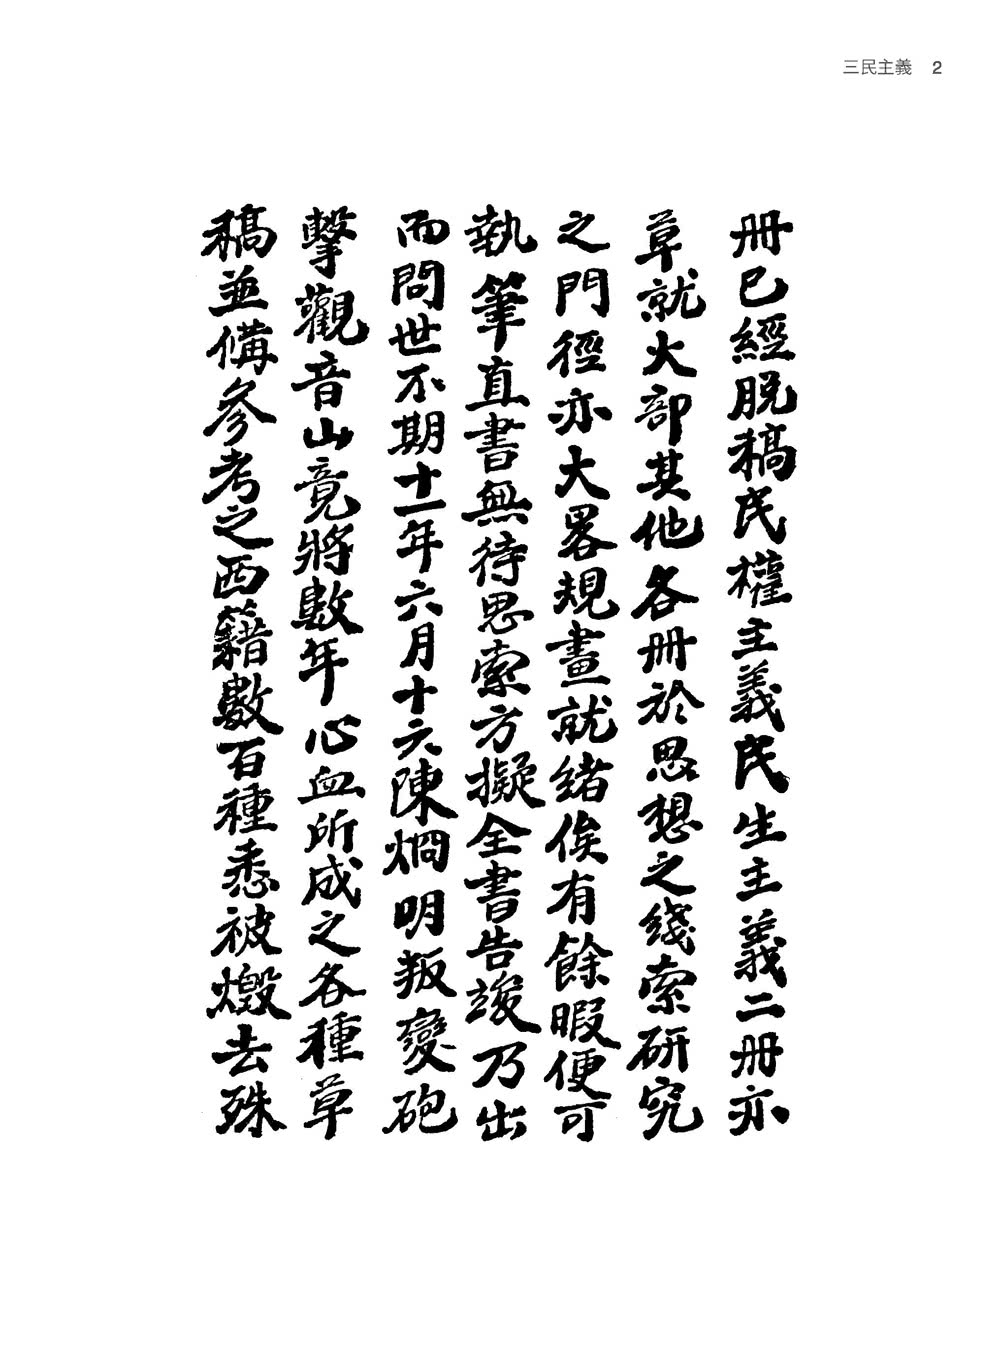 三民主義 2
冊已經脱稿民權主義民生主義二冊亦
草就大部其他各冊於思想之綫索研究
之門徑亦大畧規畫就緒俟有餘暇便可
執筆直書無待思索方擬全書告竣乃出
而問世不期十一年六月十六陳烱明叛變砲
擊觀音山竟將數年心血所成之各種草
稿並備參考之西籍數百種悉被燬去殊